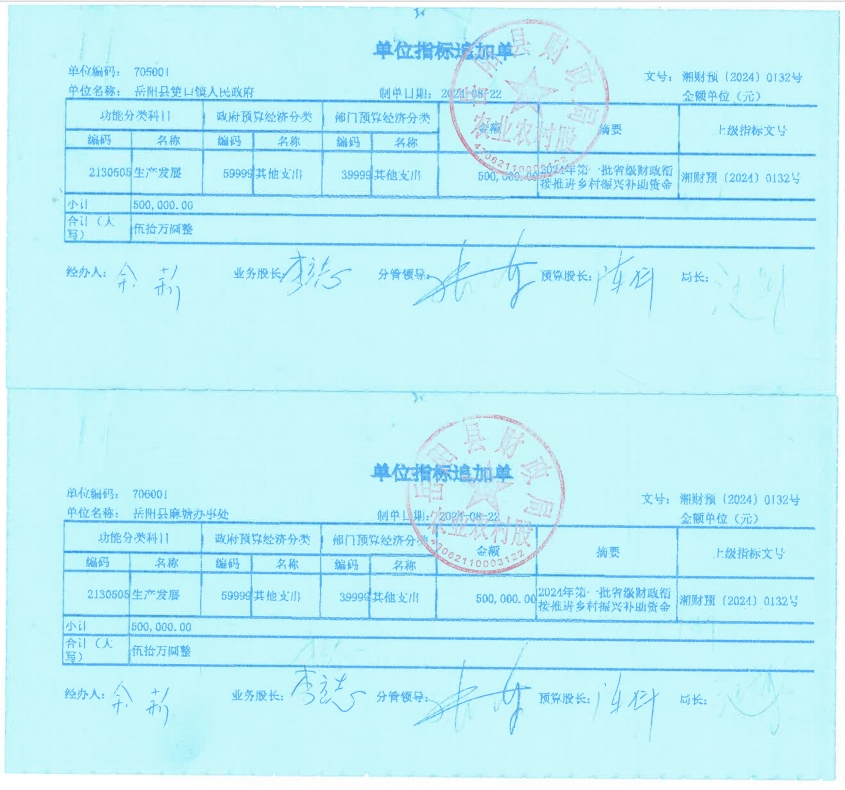 单位指标追加单
单位编码: 705001 文号: 湘财预〔2024〕0132号
单位名称: 岳阳县筻口镇人民政府 制单日期: 2024-08-22 金额单位（元）
功能分类科目 政府预算经济分类 部门预算经济分类 金额 摘要 上级指标文号
编码 名称 编码 名称 编码 名称
2130505 生产发展 59999 其他支出 39999 其他支出 500,000.00 2024年第一批省级财政衔接推进乡村振兴补助资金 湘财预〔2024〕0132号
小计 500,000.00
合计（大写） 伍拾万圆整
经办人: 余莉 业务股长: 李志 分管领导: 预算股长: 局长:
岳阳县财政局
农业农村股
单位指标追加单
单位编码: 706001 文号: 湘财预〔2024〕0132号
单位名称: 岳阳县麻塘办事处 制单日期: 2024-08-22 金额单位（元）
功能分类科目 政府预算经济分类 部门预算经济分类 金额 摘要 上级指标文号
编码 名称 编码 名称 编码 名称
2130505 生产发展 59999 其他支出 39999 其他支出 500,000.00 2024年第一批省级财政衔接推进乡村振兴补助资金 湘财预〔2024〕0132号
小计 500,000.00
合计（大写） 伍拾万圆整
经办人: 余莉 业务股长: 李志 分管领导: 预算股长: 局长:
岳阳县财政局
农业农村股